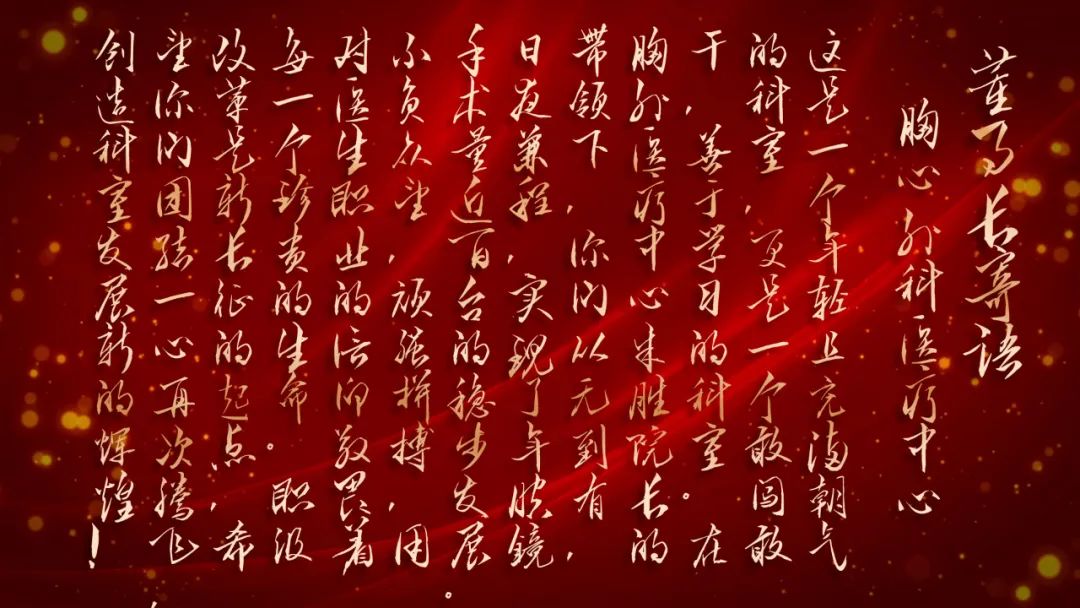 董事长寄语
胸心外科医疗中心
这是一个年轻且充满朝气
的科室，更是一个敢闯敢
干，善于学习的科室。在
胸外医疗中心朱胜院长的
带领下，你们从无到有，
日夜兼程，实现了年腔镜
手术量近百台的稳步发展。
不负众望，顽强拼搏，用
对医生职业的信仰敬畏着
每一个珍贵的生命。职级
改革是新长征的起点，希
望你们团结一心再次腾飞
创造科室发展新的辉煌！